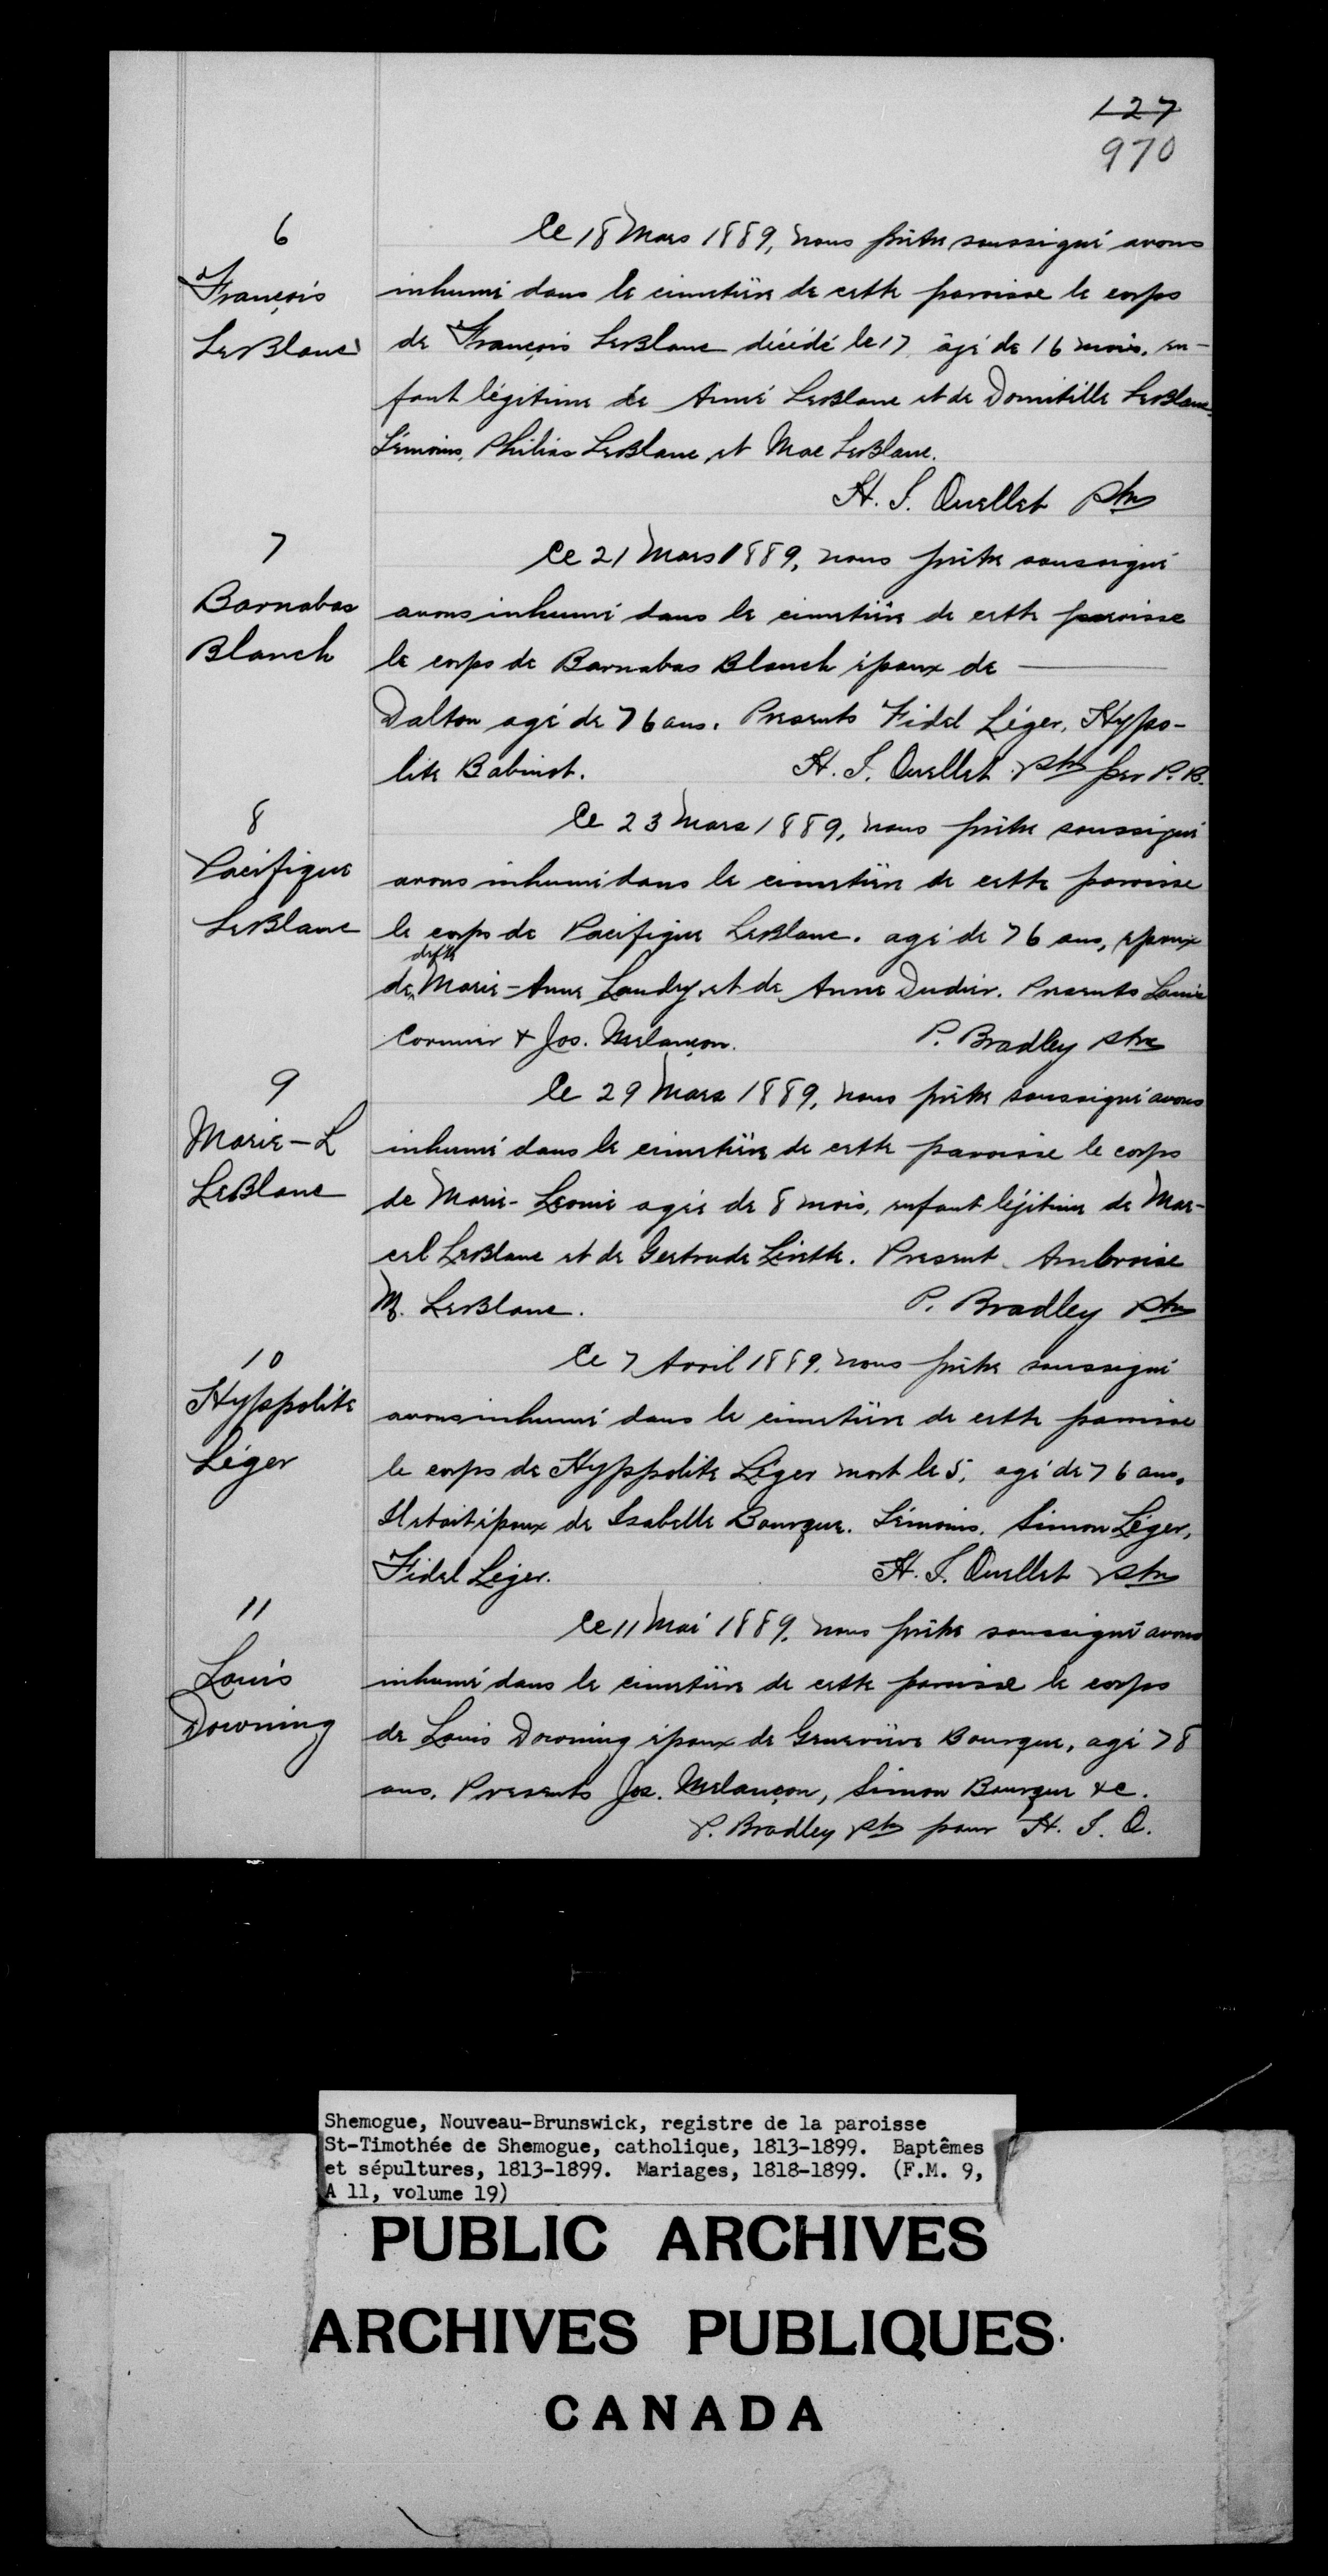 127
970
6
François
LeBlanc
Ce 18 Mars 1889, nous prêtre soussigné avons
inhumé dans le cimetière de cette paroisse le corps
de François LeBlanc décédé le 17 âgé de 16 mois, en-
fant légitime de Aimé LeBlanc et de Domitille LeBlanc.
Témoins, Philias LeBlanc et Mae LeBlanc.
H. S. Ouellet Ptre
7
Barnabas
Blanch
Ce 21 Mars 1889, nous prêtre soussigné
avons inhumé dans le cimetière de cette paroisse
le corps de Barnabas Blanch époux de ———
Dalton agé de 76 ans. Presents Fidel Léger, Hyppo-
lite Babinot. H. S. Ouellet Ptre per P. B.
8
Pacifique
LeBlanc
Ce 23 Mars 1889, nous prêtre soussigné
avons inhumé dans le cimetière de cette paroisse
le corps de Pacifique LeBlanc. agé de 76 ans, epoux
de defte Marie-Anne Landry et de Anne Dudier. Presents Louis
Cormier & Jos. Melançon. P. Bradley Ptre
9
Marie-L
LeBlanc
Ce 29 Mars 1889, nous prêtre soussigné avons
inhumé dans le cimetière de cette paroisse le corps
de Marie-Leonie agée de 8 mois, enfant légitime de Mar-
cel LeBlanc et de Gertrude Lirette. Present Ambroise
M. LeBlanc. P. Bradley Ptre
10
Hyppolite
Léger
Ce 7 Avril 1889, nous prêtre soussigné
avons inhumé dans le cimetière de cette paroisse
le corps de Hyppolite Léger mort le 5, agé de 76 ans.
Il etait époux de Isabelle Bourque. Témoins, Simon Léger,
Fidel Léger. H. S. Ouellet Ptre
11
Louis
Downing
Ce 11 Mai 1889, nous prêtre soussigné avons
inhumé dans le cimetière de cette paroisse le corps
de Louis Downing époux de Geneviève Bourque, agé 78
ans. Presents Jos. Melançon, Simon Bourque &c.
P. Bradley Ptre pour H. S. O.
Shemogue, Nouveau-Brunswick, registre de la paroisse
St-Timothée de Shemogue, catholique, 1813-1899. Baptêmes
et sépultures, 1813-1899. Mariages, 1818-1899. (F.M. 9,
A 11, volume 19)
PUBLIC ARCHIVES
ARCHIVES PUBLIQUES
CANADA